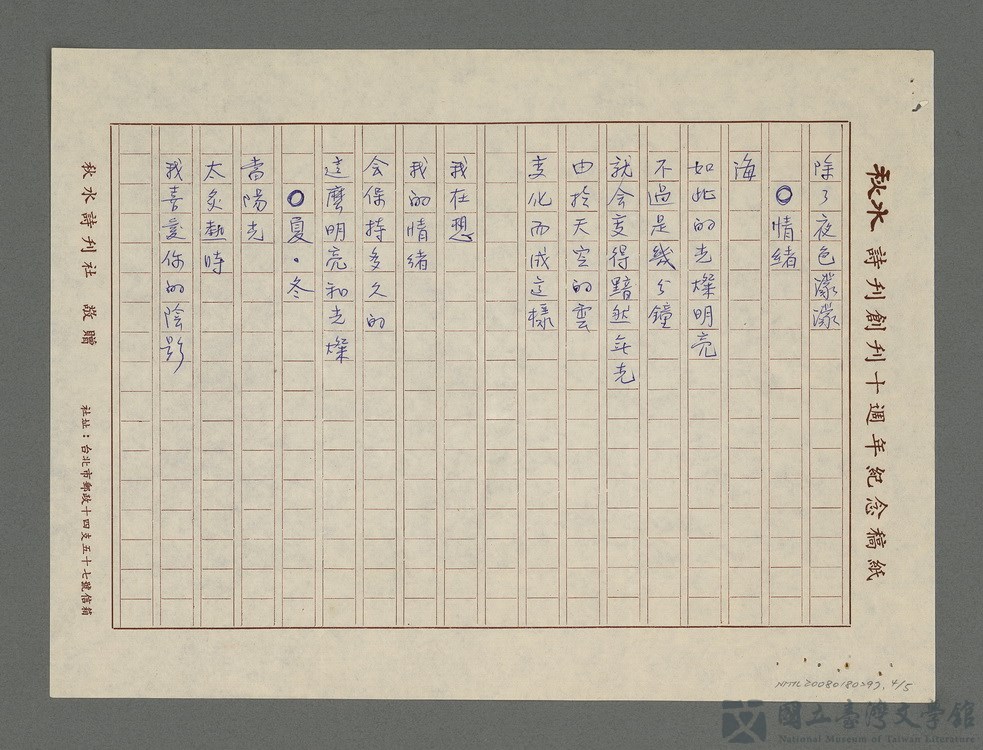 秋水 詩刊創刊十週年紀念稿紙
除了夜色濛濛
◎情緒
海
如此的光燦明亮
不過是幾分鐘
就会变得黯然無光
由於天空的雲
变化而成這樣
我在想
我的情緒
会保持多久的
這麼明亮和光燦
◎夏·冬
當陽光
太炙熱時
我喜愛你的陰影
秋水詩刊社 敬贈 社址：台北市郵政十四支五十七號信箱
NMTL20080180297. 4/5
國立臺灣文學館
National Museum of Taiwan Literature